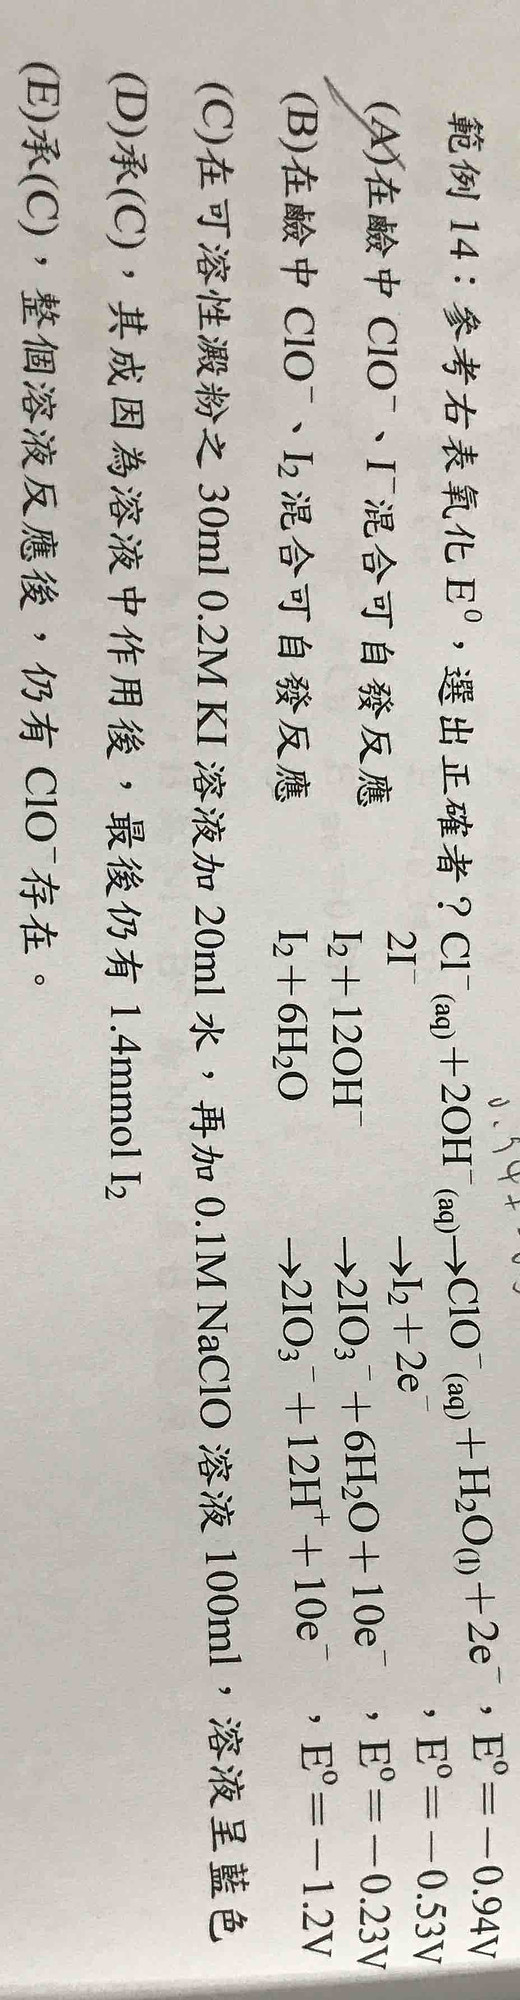 範例 14：參考右表氧化 E⁰，選出正確者？Cl⁻(aq)＋2OH⁻(aq)→ClO⁻(aq)＋H₂O(l)＋2e⁻，E⁰＝－0.94V
2I⁻ →I₂＋2e⁻ ，E⁰＝－0.53V
(A)在鹼中 ClO⁻、I⁻混合可自發反應 I₂＋12OH⁻ →2IO₃⁻＋6H₂O＋10e⁻ ，E⁰＝－0.23V
(B)在鹼中 ClO⁻、I₂混合可自發反應 I₂＋6H₂O →2IO₃⁻＋12H⁺＋10e⁻ ，E⁰＝－1.2V
(C)在可溶性澱粉之 30ml 0.2M KI 溶液加 20ml 水，再加 0.1M NaClO 溶液 100ml，溶液呈藍色
(D)承(C)，其成因為溶液中作用後，最後仍有 1.4mmol I₂
(E)承(C)，整個溶液反應後，仍有 ClO⁻存在。